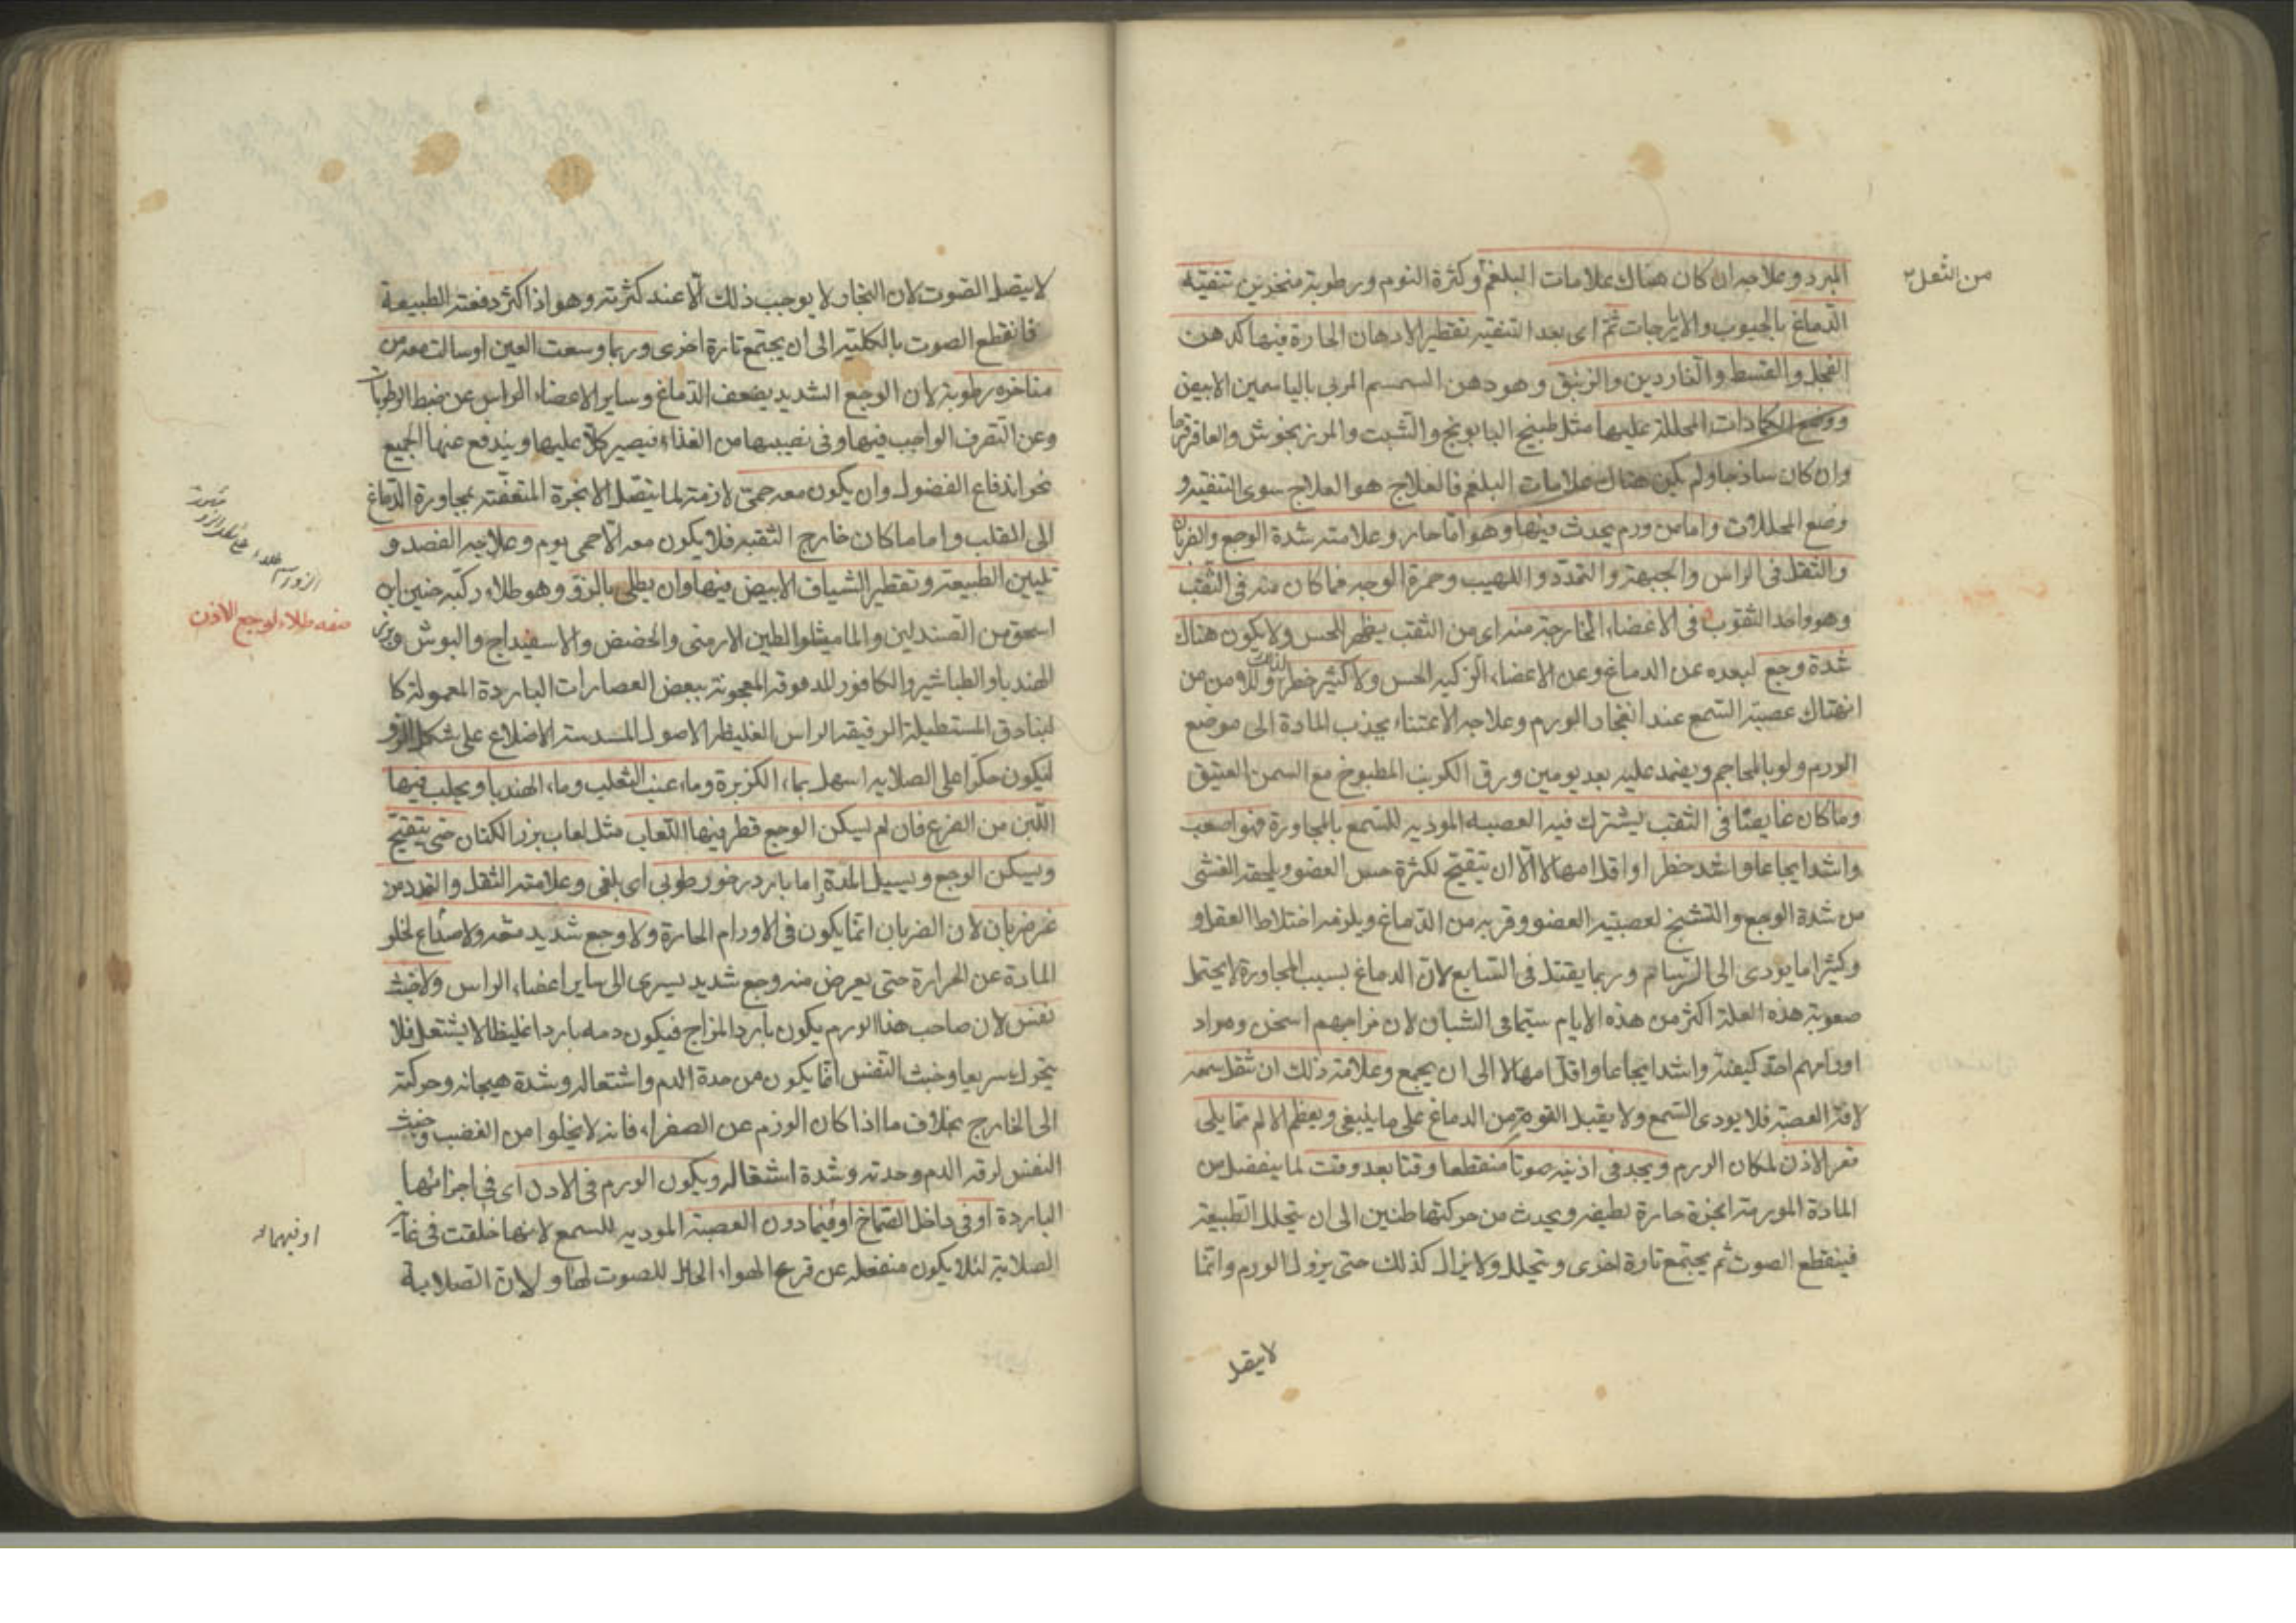 من الثقل
المبرد وعلاجه ان كان هناك علامات البلغم وكثرة النوم ورطوبة منخرين تنقيه
الدماغ بالحبوب والايارجات ثم اى بعد التنقيه تقطير الادهان الحارة فيها كدهن
الفجل والقسط والغاردين والزنبق وهو دهن السمسم المربى بالياسمين الابيض
ووضع الكمادات المحللة عليها مثل طبيخ البابونج والشبت والمرزنجوش والعاقرقرحا
وان كان ساذجا ولم يكن هناك علامات البلغم فالعلاج هو العلاج سوى التنقيه و
وضع المحللات واما من ورم يحدث فيها وهو اما حار وعلامته شدة الوجع والضربان
والثقل فى الراس والجبهة والتمدد واللهيب وحمرة الوجه فما كان منه فى الثقب
وهو واحد الثقوب فى الاعضاء الخارجة منه اى من الثقب يظهر للحس ولا يكون هناك
شدة وجع لبعده عن الدماغ وعن الاعضاء الزكيه الحس ولا كثير خطر من
انهتاك عصبة السمع عند انفجار الورم وعلاجه الاعتناء بجذب المادة الى موضع
الورم ولو بالمحاجم ويضمد عليه بعد يومين ورق الكرنب المطبوخ مع السمن العتيق
وما كان غايصا فى الثقب يشترك فيه العصبه الموديه للسمع بالمجاورة فهو اصعب
واشد ايجاعا واشد خطرا واقل امهالا الا ان يتقيح لكثرة حس العضو ويلحقه الغشى
من شدة الوجع والتشنج لعصبية العضو وقربه من الدماغ ويلزمه اختلاط العقل و
وكثيرا ما يودى الى السرسام وربما يقتل فى السابع لان الدماغ بسبب المجاورة لا يحتمل
صعوبة هذه العلة اكثر من هذه الايام سيما فى الشبان لان مزاجهم اسخن ومواد
اورامهم احد كيفية واشد ايجاعا واقل امهالا الى ان يجمع وعلامة ذلك ان ثقل سمعه
لافة العصبة فلا يودى السمع ولا يقبل القوة من الدماغ على ما ينبغى ويعظم الالم مما يلى
قعر الاذن لمكان الورم ويجد فى اذنيه صوتا منقطعا وقتا بعد وقت لما ينفصل من
المادة المورمة ابخرة حارة لطيفه ويحدث من حركتها طنين الى ان يتحلل الطبيعة
فينقطع الصوت ثم يجتمع تارة اخرى ويتحلل ولا يزال كذلك حتى يزول الورم وانما
لا يتصل
لا يتصل الصوت لان البخار لا يوجب ذلك الا عند كثرته وهو اذا كثر دفعته الطبيعة
فانقطع الصوت بالكلية الى ان يجتمع تارة اخرى وربما وسعت العين او سالت معه من
مناخره رطوبة لان الوجع الشديد يضعف الدماغ وساير الاعضاء الراس عن ضبط الرطوبات
وعن التصرف الواجب فيها وفى نصيبها من الغذاء فيصير كلا عليها ويندفع عنها الجميع
نحو اندفاع الفضول وان يكون معه حمى لازمة لما يتصل الابخرة المتعفنة بمجاورة الدماغ
الى القلب واما ما كان خارج الثقبه فلا يكون معه الا حمى يوم وعلاجه الفصد و
تليين الطبيعة وتقطير الشياف الابيض فيها وان يطلى بالزق وهو طلاء ركبه حنين ابن
اسحق من الصندلين والماميثا والطين الارمنى والحضض والاسفيداج والبوش وبزر
الهندبا والطباشير والكافور المدقوقة المعجونة ببعض العصارات الباردة المعمولة كا
لبنادق المستطيلة الرقيقة الراس الغليظة الاصول المسدسة الاضلاع على شكل الزرو
ليكون حكها على الصلايه اسهل بماء الكزبرة وماء عنب الثعلب وماء الهندبا ويحلب فيها
اللبن من الضرع فان لم يسكن الوجع قطر فيها اللعاب مثل لعاب بزر الكتان حتى يتقيح
ويسكن الوجع ويسيل المدة واما بارد رخو رطوبى اى بلغمى وعلامته الثقل والتمدد من
غير ضربان لان الضربان انما يكون فى الاورام الحارة ولا وجع شديد معه ولا صداع لخلو
المادة عن الحرارة حتى يعرض منه وجع شديد يسرى الى ساير اعضاء الراس ولا خبث
نفس لان صاحب هذا الورم يكون بارد المزاج فيكون دمه باردا غليظا لا يشتعل فلا
يتحرك سريعا وخبث النفس انما يكون من حدة الدم واشتعاله وشدة هيجانه وحركته
الى الخارج بخلاف ما اذا كان الورم عن الصفراء فانه لا يخلوا من الغضب وخبث
النفس لرقة الدم وحدته وشدة اشتعاله ويكون الورم فى الاذن اى فى اجزائها
الباردة او فى داخل الصماخ او فيما دون العصبة الموديه للسمع لانها خلقت فى غاية
الصلابة لئلا يكون منفعله عن قرع الهواء الحامل للصوت لها ولان الصلابة
صفه طلاء لوجع الاذن
او فيهما